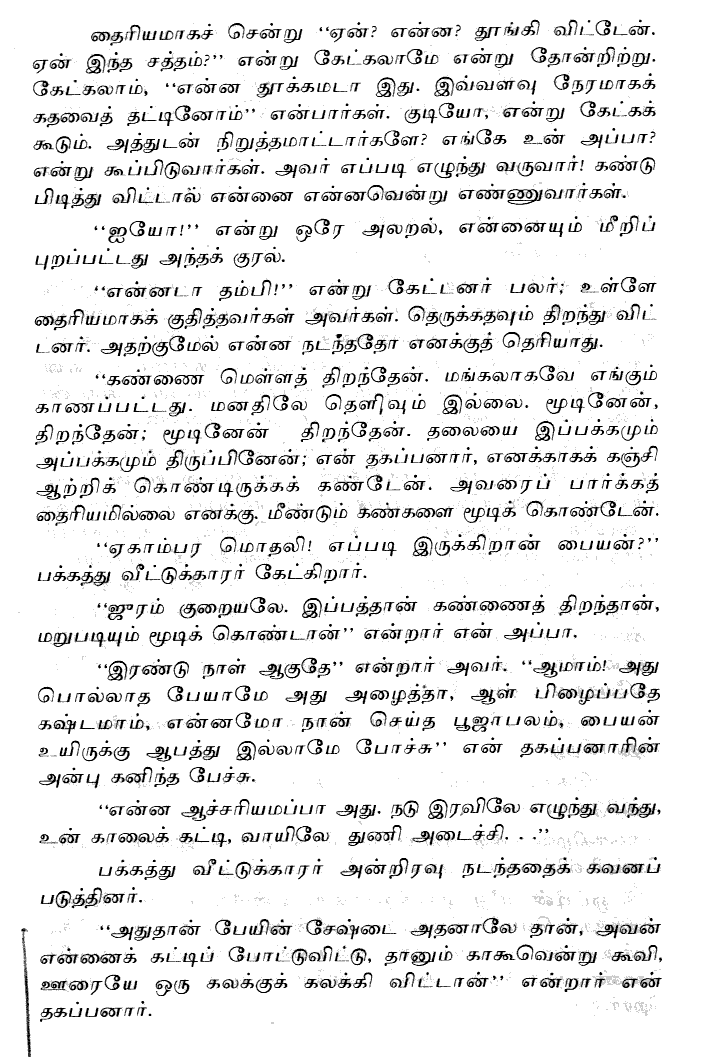 தைரியமாகச் சென்று “ஏன்? என்ன? தூங்கி விட்டேன்.
ஏன் இந்த சத்தம்?” என்று கேட்கலாமே என்று தோன்றிற்று.
கேட்கலாம், “என்ன தூக்கமடா இது. இவ்வளவு நேரமாகக்
கதவைத் தட்டினோம்” என்பார்கள். குடியோ, என்று கேட்கக்
கூடும். அத்துடன் நிறுத்தமாட்டார்களே? எங்கே உன் அப்பா?
என்று கூப்பிடுவார்கள். அவர் எப்படி எழுந்து வருவார்! கண்டு
பிடித்து விட்டால் என்னை என்னவென்று எண்ணுவார்கள்.
“ஐயோ!” என்று ஒரே அலறல், என்னையும் மீறிப்
புறப்பட்டது அந்தக் குரல்.
“என்னடா தம்பி!” என்று கேட்டனர் பலர்; உள்ளே
தைரியமாகக் குதித்தவர்கள் அவர்கள். தெருக்கதவும் திறந்து விட்
டனர். அதற்குமேல் என்ன நடந்ததோ எனக்குத் தெரியாது.
“கண்ணை மெள்ளத் திறந்தேன். மங்கலாகவே எங்கும்
காணப்பட்டது. மனதிலே தெளிவும் இல்லை. மூடினேன்,
திறந்தேன்; மூடினேன் திறந்தேன். தலையை இப்பக்கமும்
அப்பக்கமும் திருப்பினேன்; என் தகப்பனார், எனக்காகக் கஞ்சி
ஆற்றிக் கொண்டிருக்கக் கண்டேன். அவரைப் பார்க்கத்
தைரியமில்லை எனக்கு. மீண்டும் கண்களை மூடிக் கொண்டேன்.
“ஏகாம்பர மொதலி! எப்படி இருக்கிறான் பையன்?”
பக்கத்து வீட்டுக்காரர் கேட்கிறார்.
“ஜுரம் குறையலே. இப்பத்தான் கண்ணைத் திறந்தான்,
மறுபடியும் மூடிக் கொண்டான்” என்றார் என் அப்பா.
“இரண்டு நாள் ஆகுதே” என்றார் அவர். “ஆமாம்! அது
பொல்லாத பேயாமே அது அழைத்தா, ஆள் பிழைப்பதே
கஷ்டமாம், என்னமோ நான் செய்த பூஜாபலம், பையன்
உயிருக்கு ஆபத்து இல்லாமே போச்சு” என் தகப்பனாரின்
அன்பு கனிந்த பேச்சு.
“என்ன ஆச்சரியமப்பா அது. நடு இரவிலே எழுந்து வந்து,
உன் காலைக் கட்டி, வாயிலே துணி அடைச்சி. . .”
பக்கத்து வீட்டுக்காரர் அன்றிரவு நடந்ததைக் கவனப்
படுத்தினர்.
“அதுதான் பேயின் சேஷ்டை அதனாலே தான், அவன்
என்னைக் கட்டிப் போட்டுவிட்டு, தானும் காகூவென்று கூவி,
ஊரையே ஒரு கலக்குக் கலக்கி விட்டான்” என்றார் என்
தகப்பனார்.